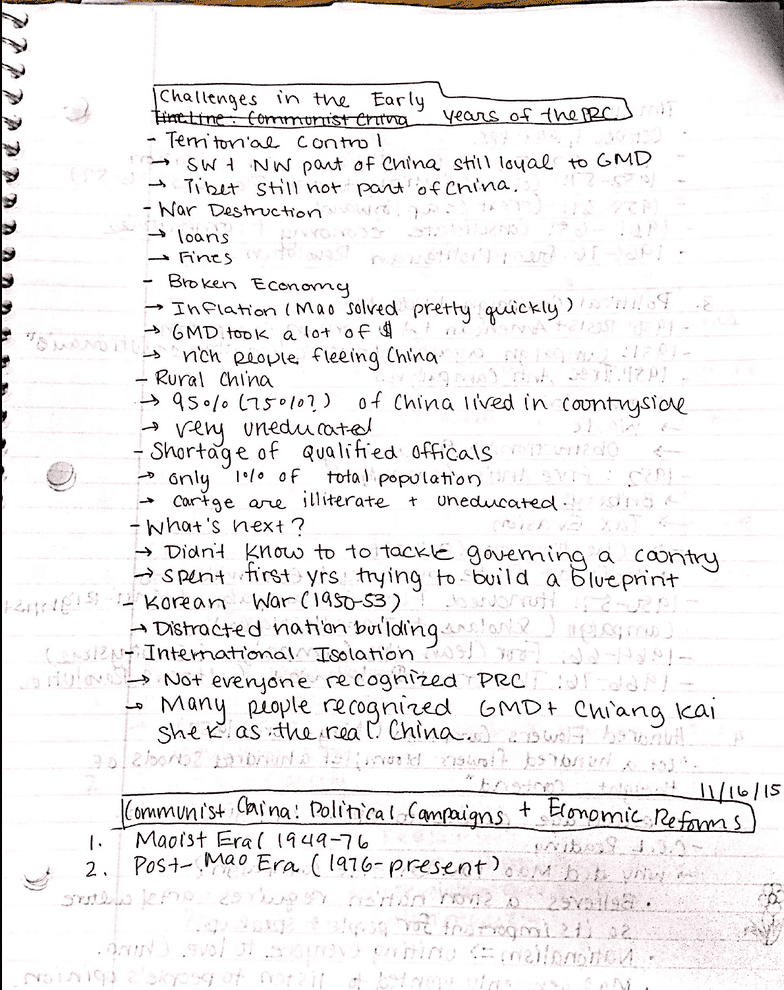 Challenges in the Early
Timeline: Communist China years of the PRC
- Territorial Control
→ SW + NW part of China still loyal to GMD
→ Tibet still not part of China.
- War Destruction
→ loans
→ Fines
- Broken Economy
→ Inflation (Mao solved pretty quickly)
→ GMD took a lot of $
→ rich people fleeing China
- Rural China
→ 95% (75%?) of China lived in countryside
→ very uneducated
- Shortage of qualified officals
→ only 1% of total population
→ are illiterate + uneducated.
- What's next?
→ Didn't know to to tackle governing a country
→ spent first yrs trying to build a blueprint
- Korean War (1950-53)
→ Distracted nation building
- International Isolation
→ Not everyone recognized PRC
→ Many people recognized GMD + Chiang Kai
shek as the real China.
11/16/15
Communist China: Political Campaigns + Economic Reforms
1. Maoist Era (1949-76
2. Post-Mao Era (1976-present)